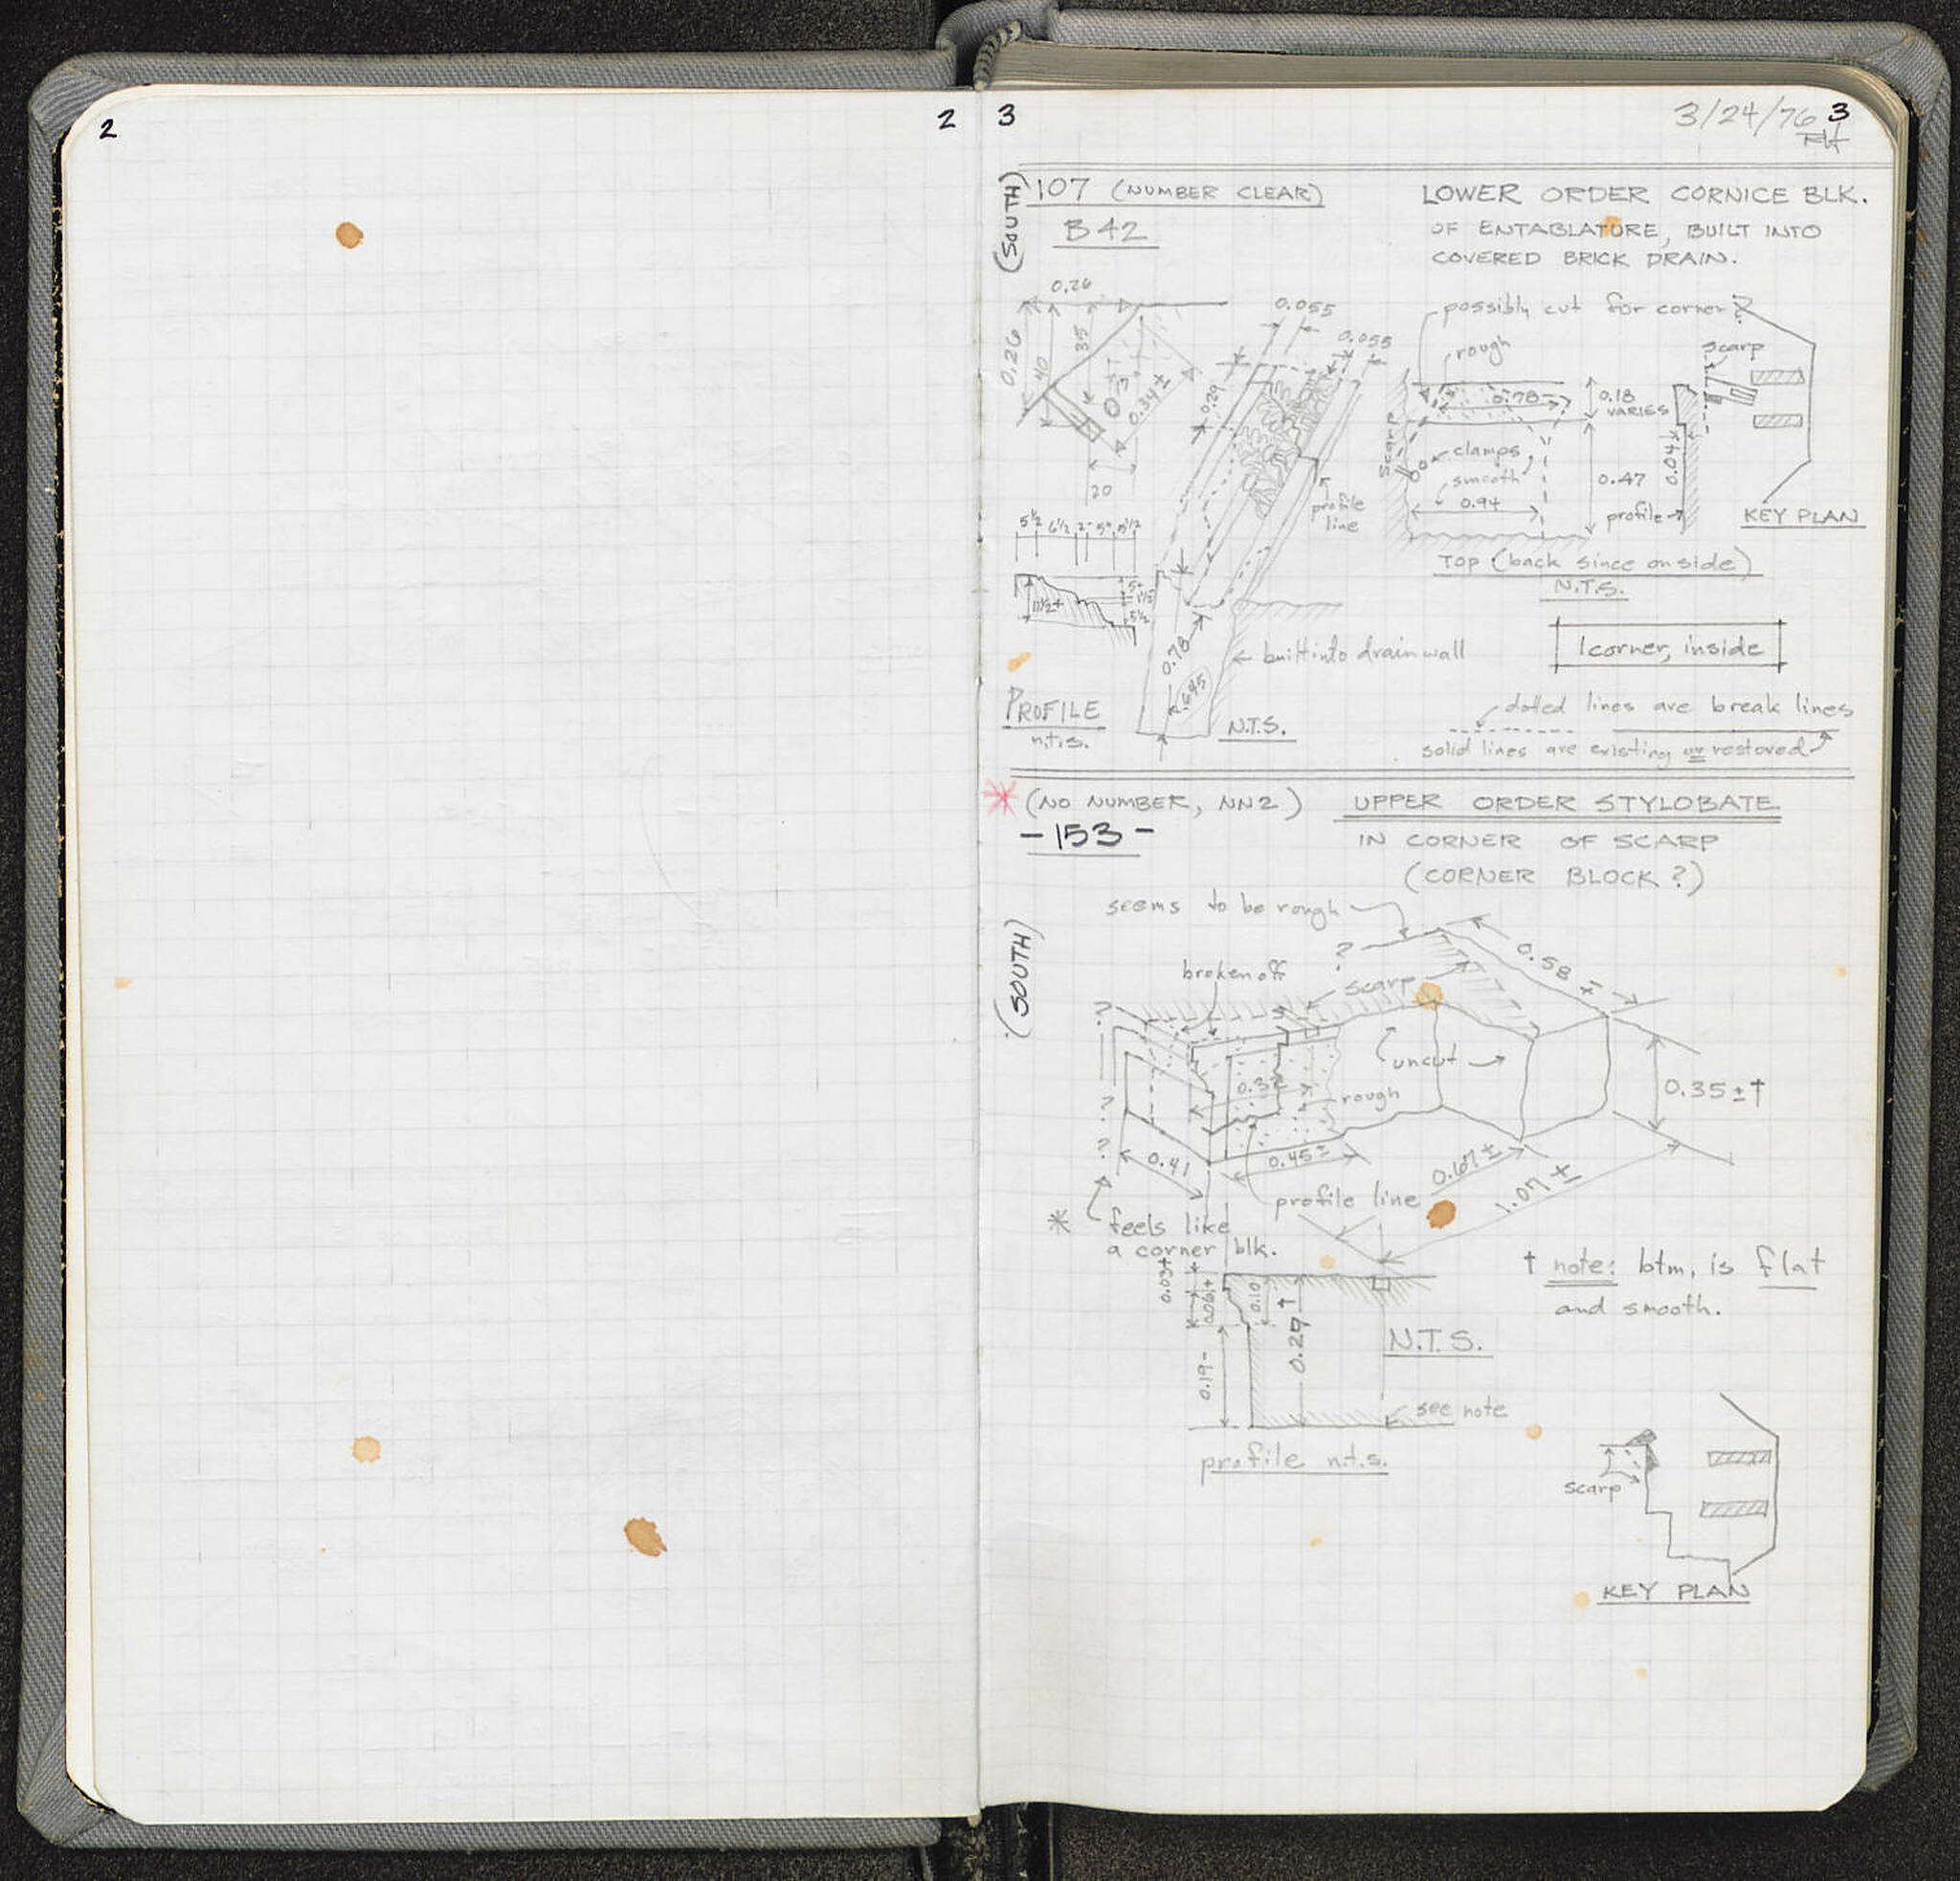 2
2
3
3/24/76 3
(SOUTH)
107 (NUMBER CLEAR)
B42
LOWER ORDER CORNICE BLK.
OF ENTABLATURE, BUILT INTO
COVERED BRICK DRAIN.
0.26
0.26
40
35
0.34±
20
0.055
0.055
0.29
profile
line
possibly cut for corner?
rough
0.78
0.18
VARIES
scarp
clamps
smooth
0.94
0.47
0.04
profile
scarp
KEY PLAN
TOP (back since on side)
N.T.S.
5½ 6½ 2- 5+ 5½
11½+
5+
1½
5½
PROFILE
n.t.s.
0.78
.645
built into drain wall
N.T.S.
1 corner, inside
dotted lines are break lines
solid lines are existing or restored
* (NO NUMBER, NN2)
-153-
UPPER ORDER STYLOBATE
IN CORNER OF SCARP
(CORNER BLOCK?)
(SOUTH)
seems to be rough
?
broken off
scarp
0.58 ±
?
uncut
0.35±†
rough
?
?
0.41
0.45±
0.67±
1.07 ±
profile line
* feels like
a corner blk.
† note: btm, is flat
and smooth.
0.03+
0.06+
0.10
0.29 †
0.19-
N.T.S.
see note
profile n.t.s.
scarp
KEY PLAN